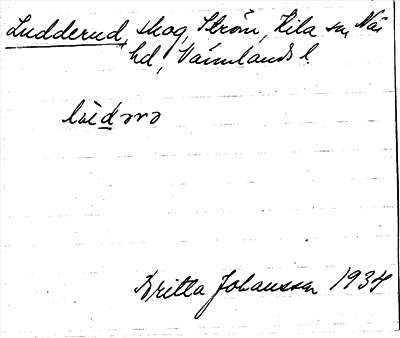 Ludderud, skog, Ström, Kila sn, Näs
hd, Värmlands l.
Britta Johansson 1934